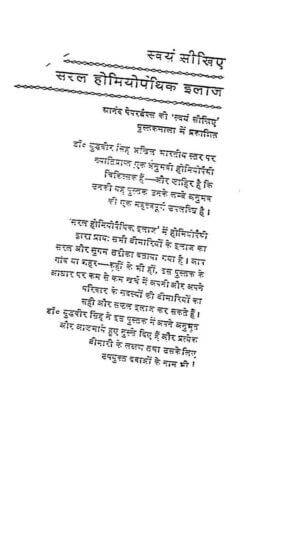 स्वयं सीखिए
सरल होमियोपैथिक इलाज
आनंद पेपरबैक्स की 'स्वयं सीखिए'
पुस्तकमाला में प्रकाशित
डॉ० युद्धवीर सिंह अखिल भारतीय स्तर पर
ख्यातिप्राप्त एक अनुभवी होमियोपैथी
चिकित्सक हैं—और ज़ाहिर है कि
उनकी यह पुस्तक उनके लम्बे अनुभव
की एक महत्त्वपूर्ण उपलब्धि है।
'सरल होमियोपैथिक इलाज' में होमियोपैथी
द्वारा प्रायः सभी बीमारियों के इलाज का
सरल और सुगम तरीका बताया गया है। आप
गांव या शहर—कहीं के भी हों, इस पुस्तक के
आधार पर कम से कम खर्च में अपनी और अपने
परिवार के सदस्यों की बीमारियों का
सही और सफल इलाज कर सकते हैं।
डॉ० युद्धवीर सिंह ने इस पुस्तक में अपने अनुभूत
और आजमाये हुए नुस्खे दिए हैं और प्रत्येक
बीमारी के लक्षण तथा उसके लिए
उपयुक्त दवाओं के नाम भी!